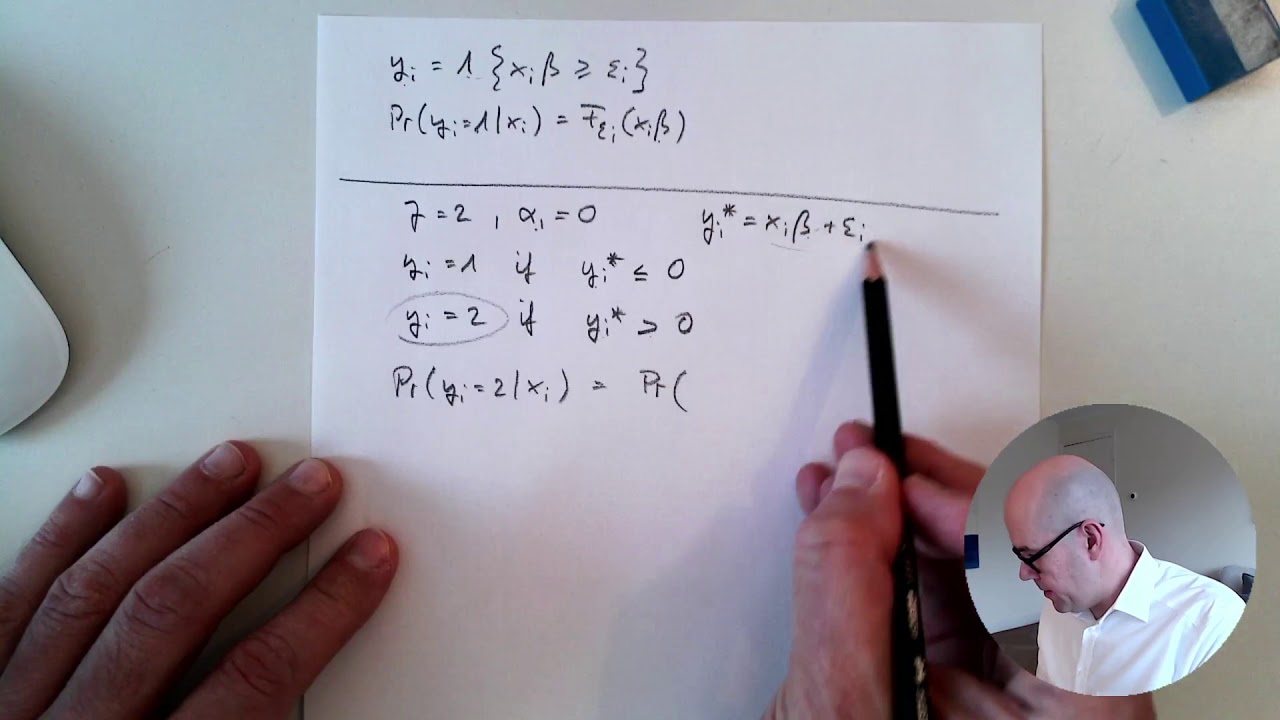 yᵢ = 1 {xᵢβ ≥ εᵢ}
Pr(yᵢ=1|xᵢ) = F_εᵢ(xᵢβ)
J = 2 , α₁ = 0 yᵢ* = xᵢβ + εᵢ
yᵢ = 1 if yᵢ* ≤ 0
yᵢ = 2 if yᵢ* > 0
Pr(yᵢ=2|xᵢ) = Pr(